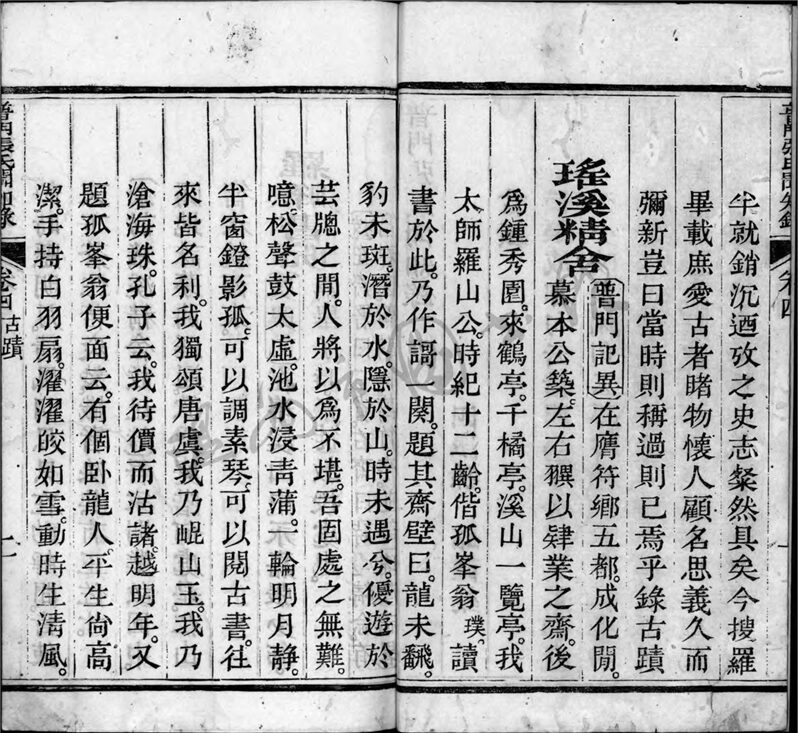 半就銷沉迺攷之史志粲然具矣今搜羅
畢載庶愛古者睹物懷人顧名思義久而
彌新豈曰當時則稱過則已焉乎錄古蹟
瑤溪精舍 普門記異 在膺符鄉五都。成化閒。
慕本公築。左右猽以肄業之齋。後
爲鍾秀園。來鶴亭。千橘亭。溪山一覽亭。我
太師羅山公。時紀十二齡。偕孤峯翁 璞 讀
書於此。乃作謌一闋。題其齋壁曰。龍未飜。
豹未斑。潛於水。隱於山。時未遇兮。優遊於
芸牕之間。人將以爲不堪。吾固處之無難。
噫松聲鼓太虛。池水浸靑蒲。一輪明月靜。
半窗鐙影孤。可以調素琴。可以閱古書。往
來皆名利。我獨頌唐虞。我乃崐山玉。我乃
滄海珠。孔子云。我待價而沽諸。越明年。又
題孤峯翁便面云。有個卧龍人。平生尙高
潔。手持白羽扇。濯濯皎如雪。動時生淸風。
普門張氏聞知錄
卷四 古蹟